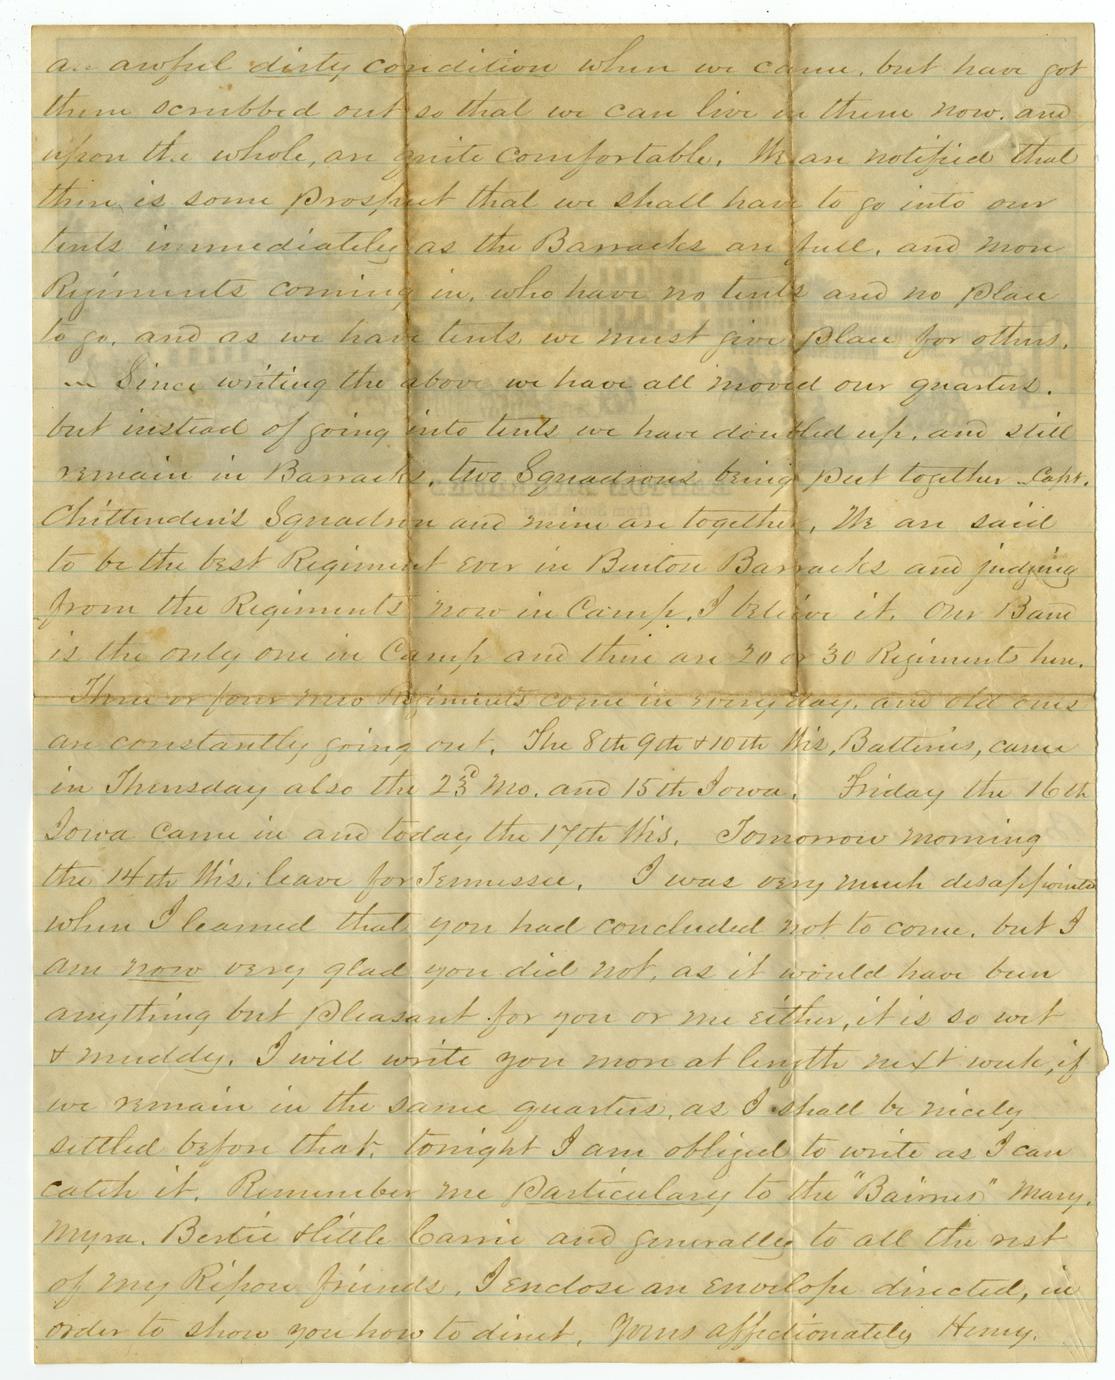 an awful dirty condition when we came, but have got
them scrubbed out so that we can live in them now, and
upon the whole, are quite comfortable. We are notified that
there is some prospect that we shall have to go into our
tents immediately as the Barracks are full, and more
Regiments coming in, who have no tents and no place
to go, and as we have tents, we must give place for others.
Since writing the above we have all moved our quarters.
but instead of going into tents we have doubled up, and still
remain in Barracks, two Squadrons being put together. Capt.
Chittenden's Squadron and mine are together. We are said
to be the best Regiment ever in Benton Barracks and judging
from the Regiments now in Camp, I believe it. Our Band
is the only one in Camp and there are 20 or 30 Regiments here.
Three or four new Regiments come in every day, and old ones
are constantly going out. The 8th 9th & 10th Wis, Batteries, came
in Thursday also the 23d Mo. and 15th Iowa. Friday the 16th
Iowa came in and today the 17th Wis. Tomorrow morning
the 14th Wis. leave for Tennessee. I was very much disappointed
when I learned that you had concluded not to come, but I
am now very glad you did not, as it would have been
anything but pleasant for you or me either, it is so wet
& muddy. I will write you more at length next week, if
we remain in the same quarters, as I shall be nicely
settled before that. tonight I am obliged to write as I can
catch it. Remember me particulary to the "Bairnes" Mary,
Myra. Bertie & little Carrie and generally to all the rest
of my Ripon friends. I enclose an envelope directed, in
order to show you how to direct. Yours affectionately Henry.